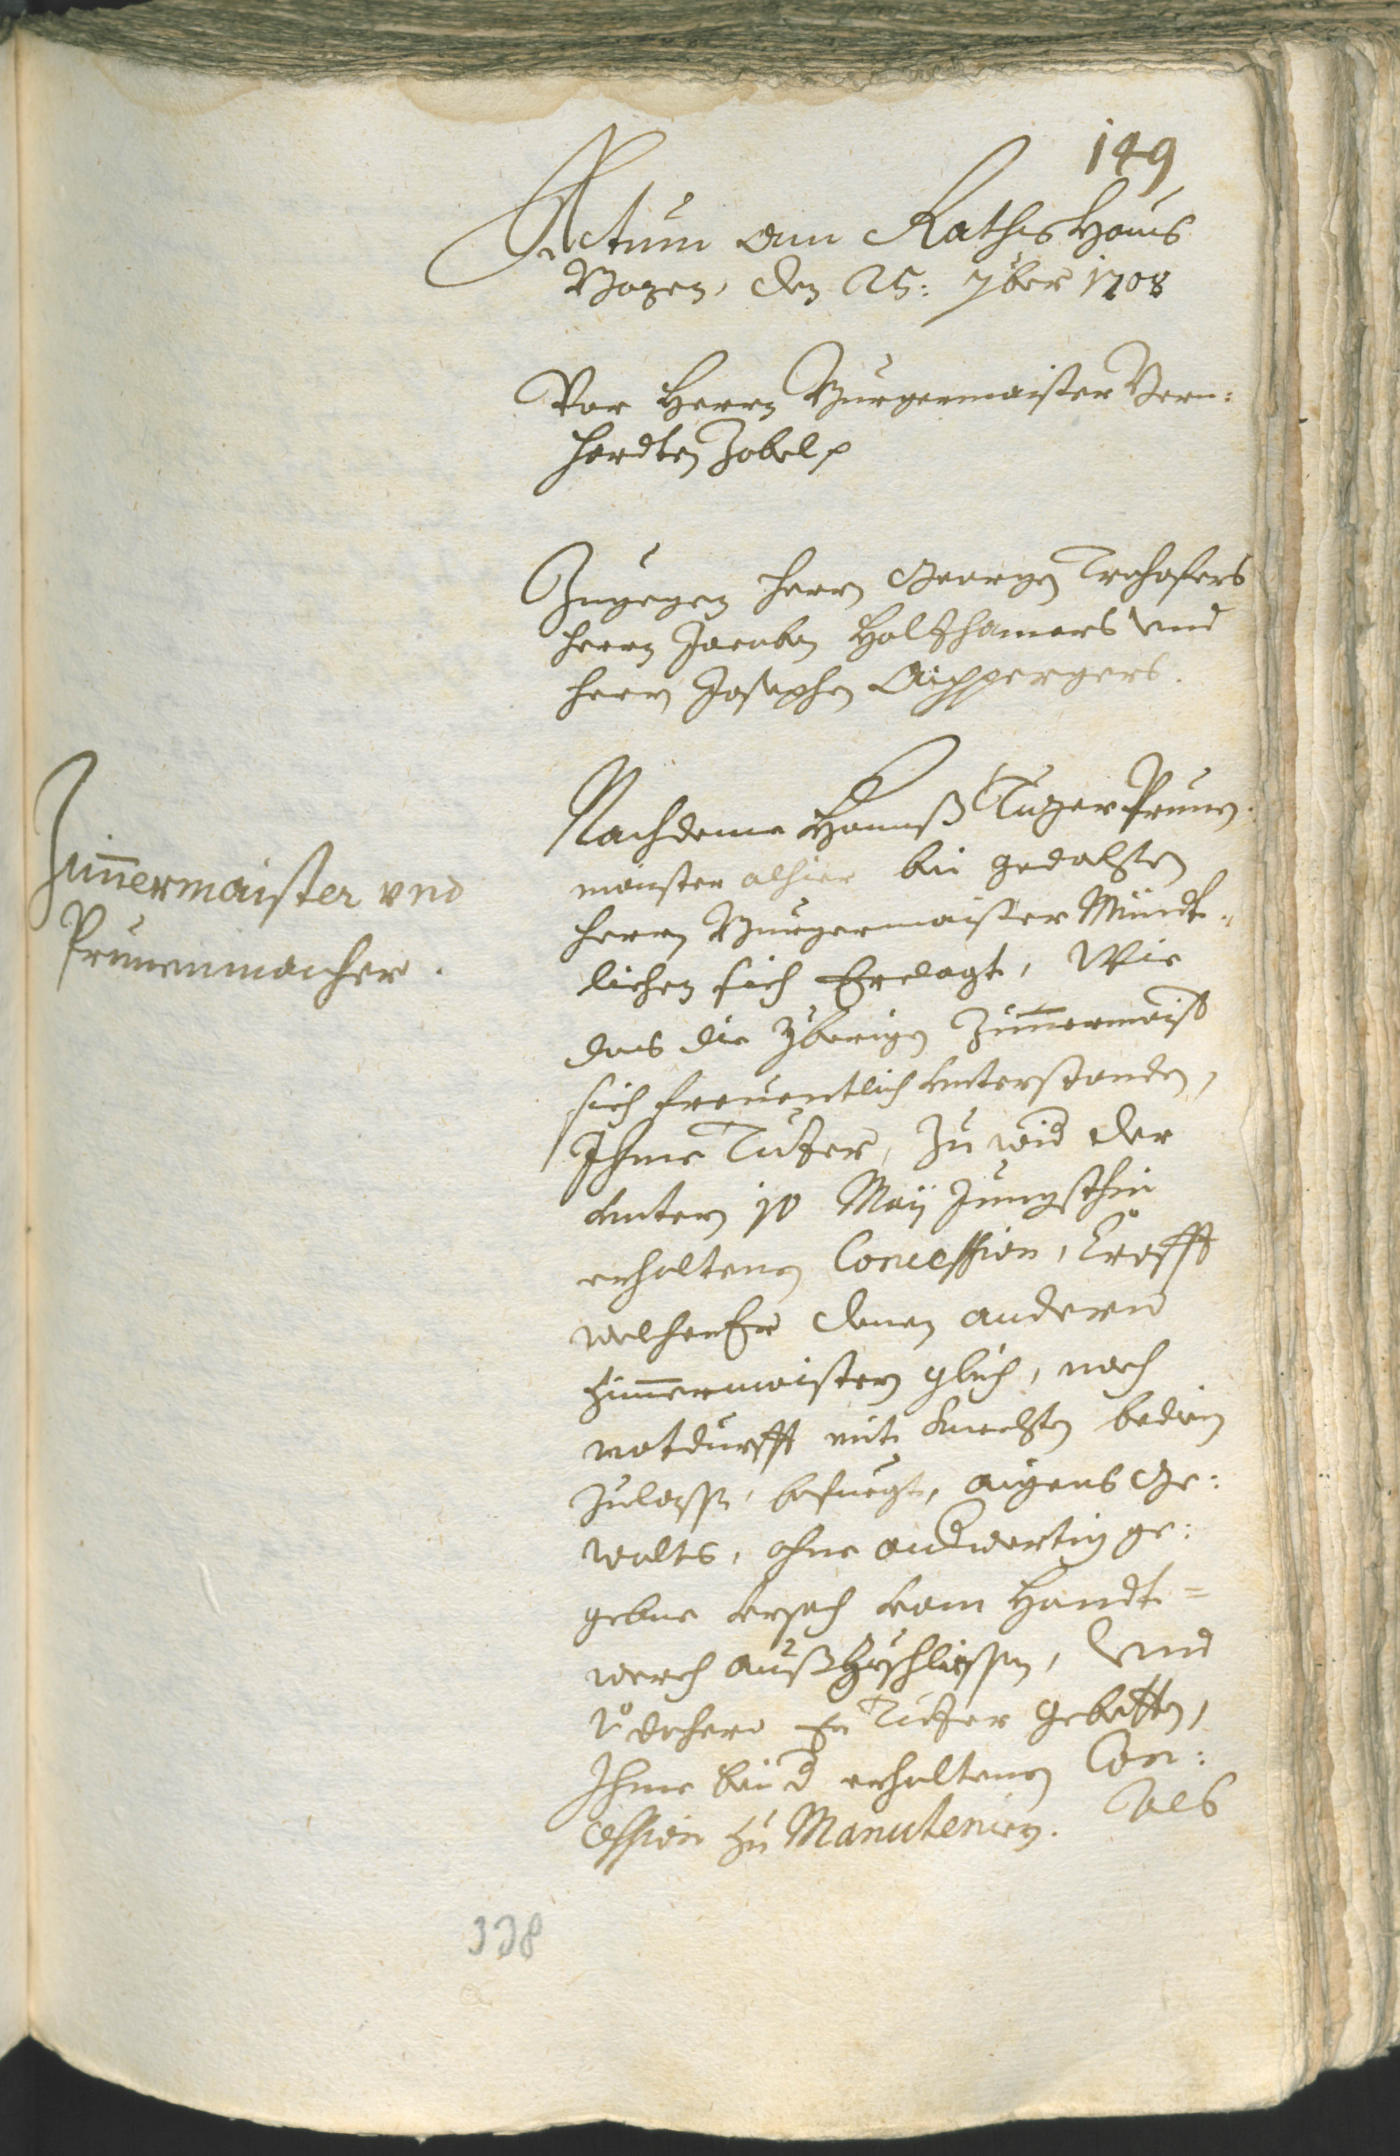 149
Actum am Raths Haus
Bozen, den 25: 7ber 1708
Vor Herrn Burgermaister Bern:
hardten Zobel p
Zugegen Herrn Georgen
Herrn Jacoben Holzhamers vnd
Herrn Josephen Aichpergers.
Zim̄ermaister vnd
Prunenmacher.
Nachdeme Hannß Tuzer Prunn:
maister alhier bei gedachten
Herrn Burgermaister Mündt:
lichen sich Erclagt, Wie
das die yberigen Zim̄ermaist
sich freuentlich vnterstanden,
Ihme Tuzer, zu wid der
vntern 10 Maÿ Jungsthin
erhaltenen Concession, Crafft
welcher Er denen andern
Zim̄ermaistern glich, nach
notdurfft mit Knechten
zulassen, befuegt, aigens Ge:
walts, ohne ge:
gebne vrsach vom Handt=
werch außzuschliessen, Vnd
dahero Er Tuzer gebetten,
Ihme bei d erhaltenen Con:
cession zu Manutenirn. Als
338